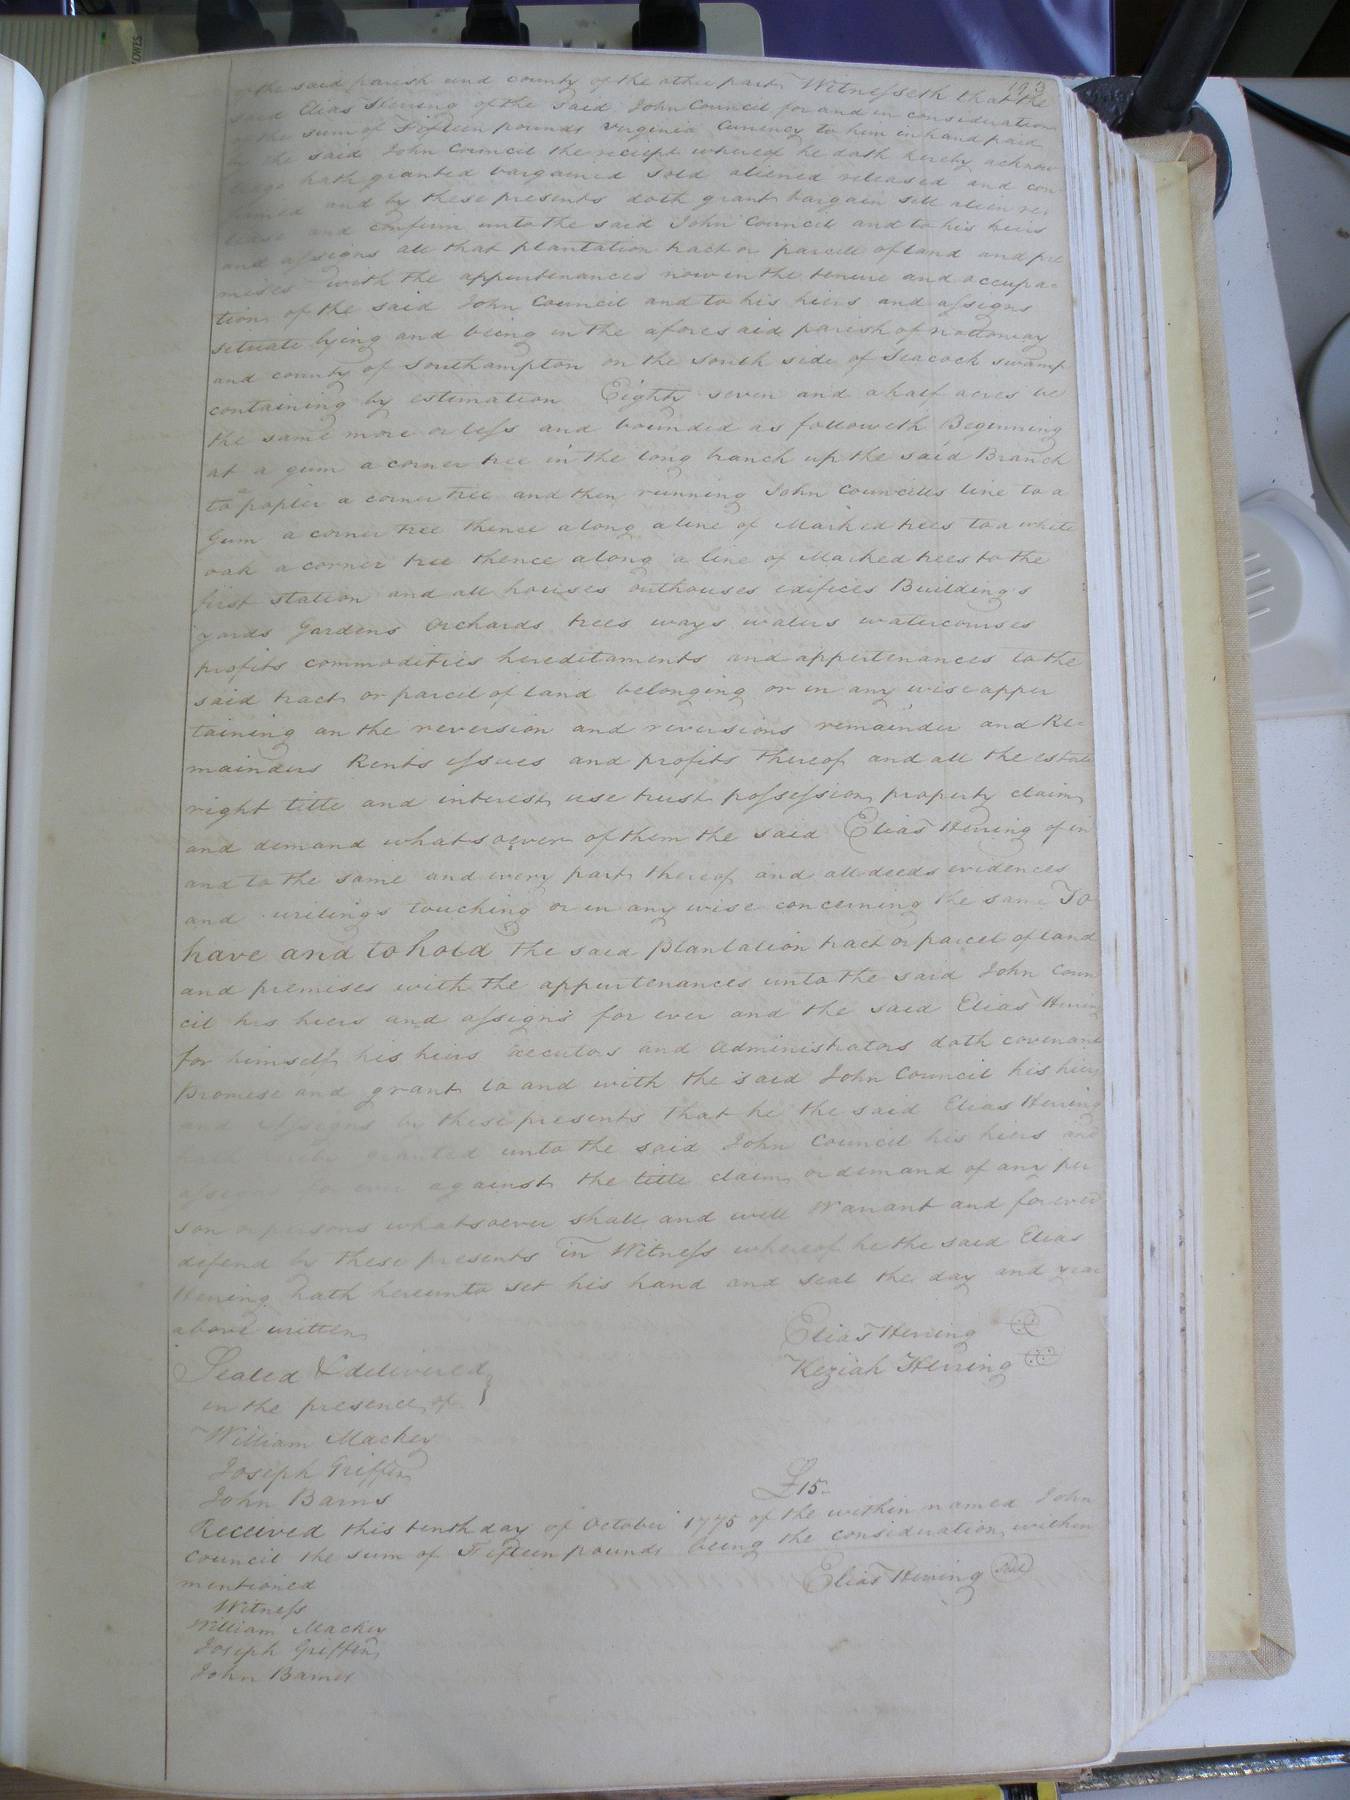 193
of the said parish and county of the other part Witnesseth that the
said Elias Herring of the said John Council for and in consideration
of the sum of Fifteen pounds Virginia Currency to him in hand paid
by the said John Council the receipt whereof he doth hereby acknow
ledge hath granted bargained sold aliened released and con
firmed and by these presents doth grant bargain sell alien re
lease and confirm unto the said John Council and to his heirs
and assigns all that plantation tract or parcell of land and pre
mises with the appurtenances now in the tenure and occupa=
tion of the said John Council and to his heirs and assigns
setuate lying and being in the aforesaid parish of nottoway
and county of Southampton on the South side of Seacock swamp
containing by estimation Eighty seven and a half acres be
the same more or less and bounded as followeth Beginning
at a gum a corner tree in the long branch up the said Branch
to a popler a corner tree and then running John Councills line to a
Gum a corner tree thence along a line of Marked trees to a white
oak a corner tree thence along a line of Marked trees to the
first station and all houses outhouses edifices Buildings
yards Gardens Orchards trees ways waters watercourses
profits commodities hereditaments and appertenances to the
said tract or parcel of land belonging or in any wise apper
taining an the reversion and reversions remainder and Re=
mainders Rents issues and profits thereof and all the estate
right title and interest use trust possession property claim
and demand whatsoever of them the said Elias Herring of in
and to the same and every part thereof and all deeds evidences
and writings touching or in any wise concerning the same To
have and to hold the said Plantation tract or parcel of land
and premises with the appurtenances unto the said John Coun
cil his heirs and assigns for ever and the said Elias Herring
for himself his heirs executors and administrators doth covenant
Promise and grant to and with the said John Council his heirs
and assigns by these presents that he the said Elias Herring
hath granted unto the said John Council his heirs and
assigns for ever against the title claim or demand of any per
son or persons whatsoever shall and will Warrant and forever
defend by these presents in Witness whereof he the said Elias
Herring hath hereunto set his hand and seal the day and year
above written
Elias Herring
Sealed & delivered
Keziah Herring
in the presence of
William Mackey
Joseph Griffin
John Barns
£15-
Received this tenth day of October 1775 of the within named John
Council the sum of Fifteen pounds being the consideration within
mentioned
Elias Herring Seal
Witness
William Mackey
Joseph Griffin
John Barnes